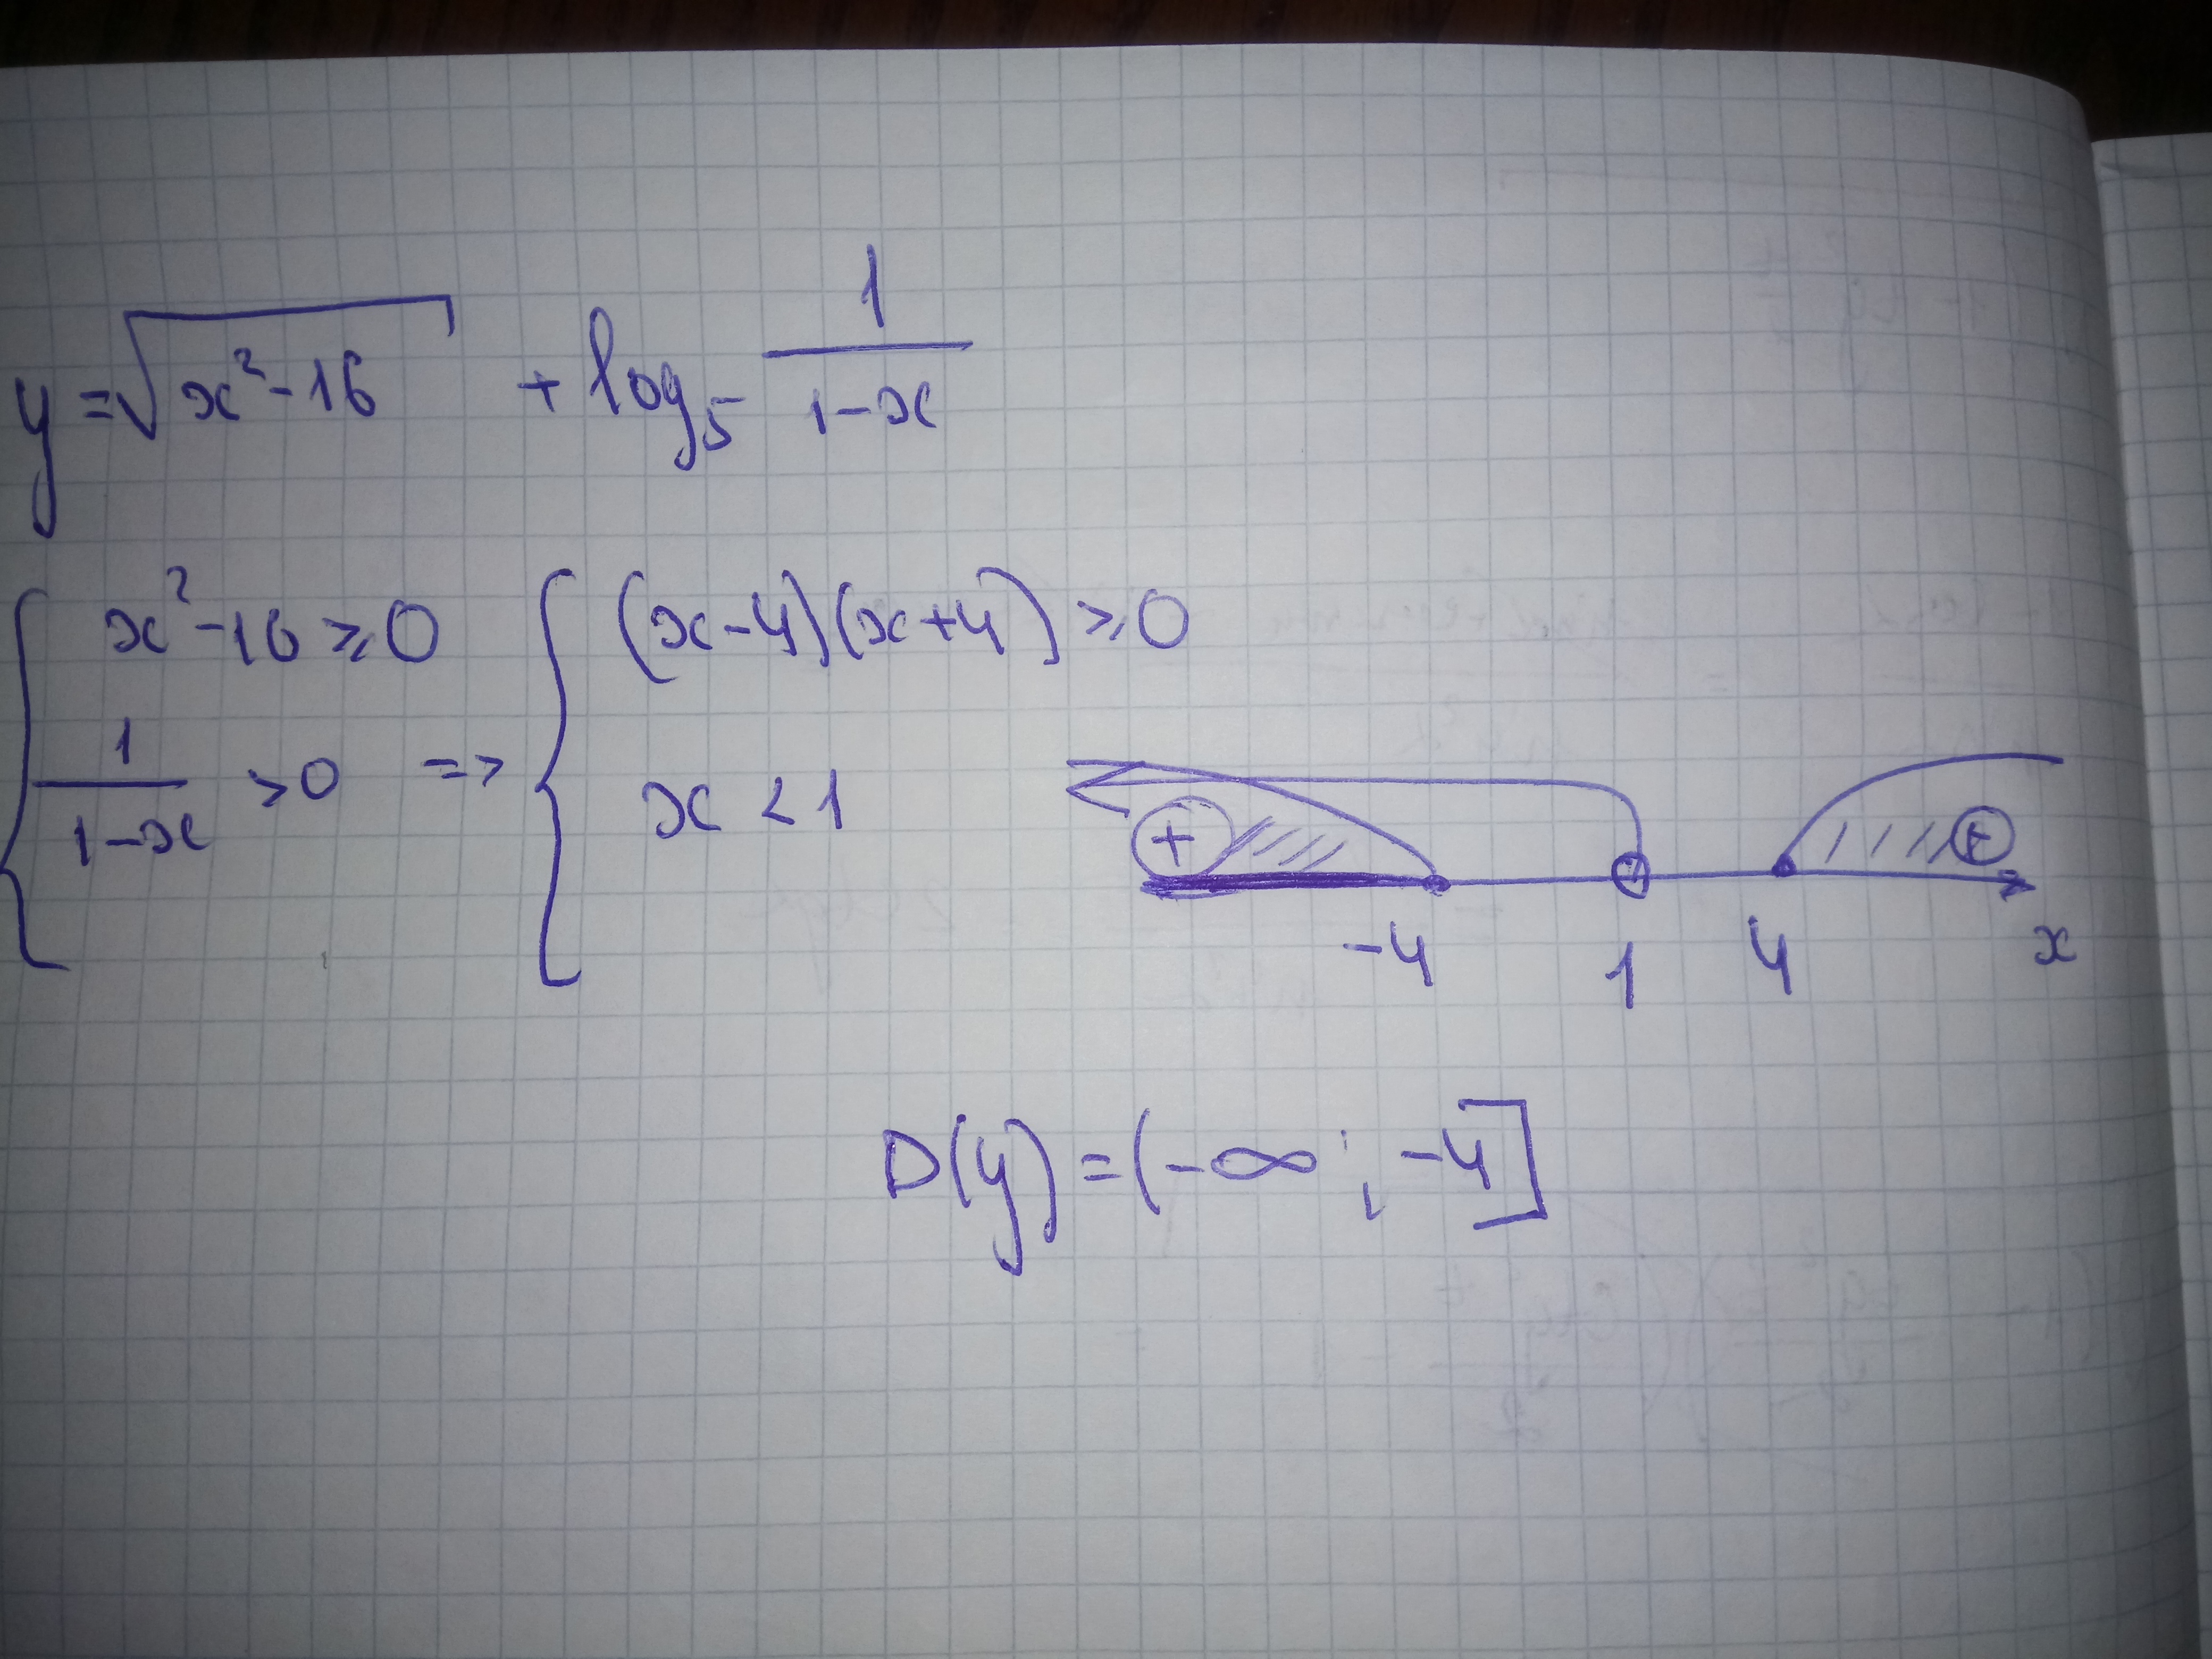 y = √(x² - 16) + log₅ 1/(1-x)
{ x² - 16 ⩾ 0 { (x-4)(x+4) ⩾ 0
1/(1-x) > 0 => x < 1
+ +
-4 1 4 x
D(y) = (-∞; -4]